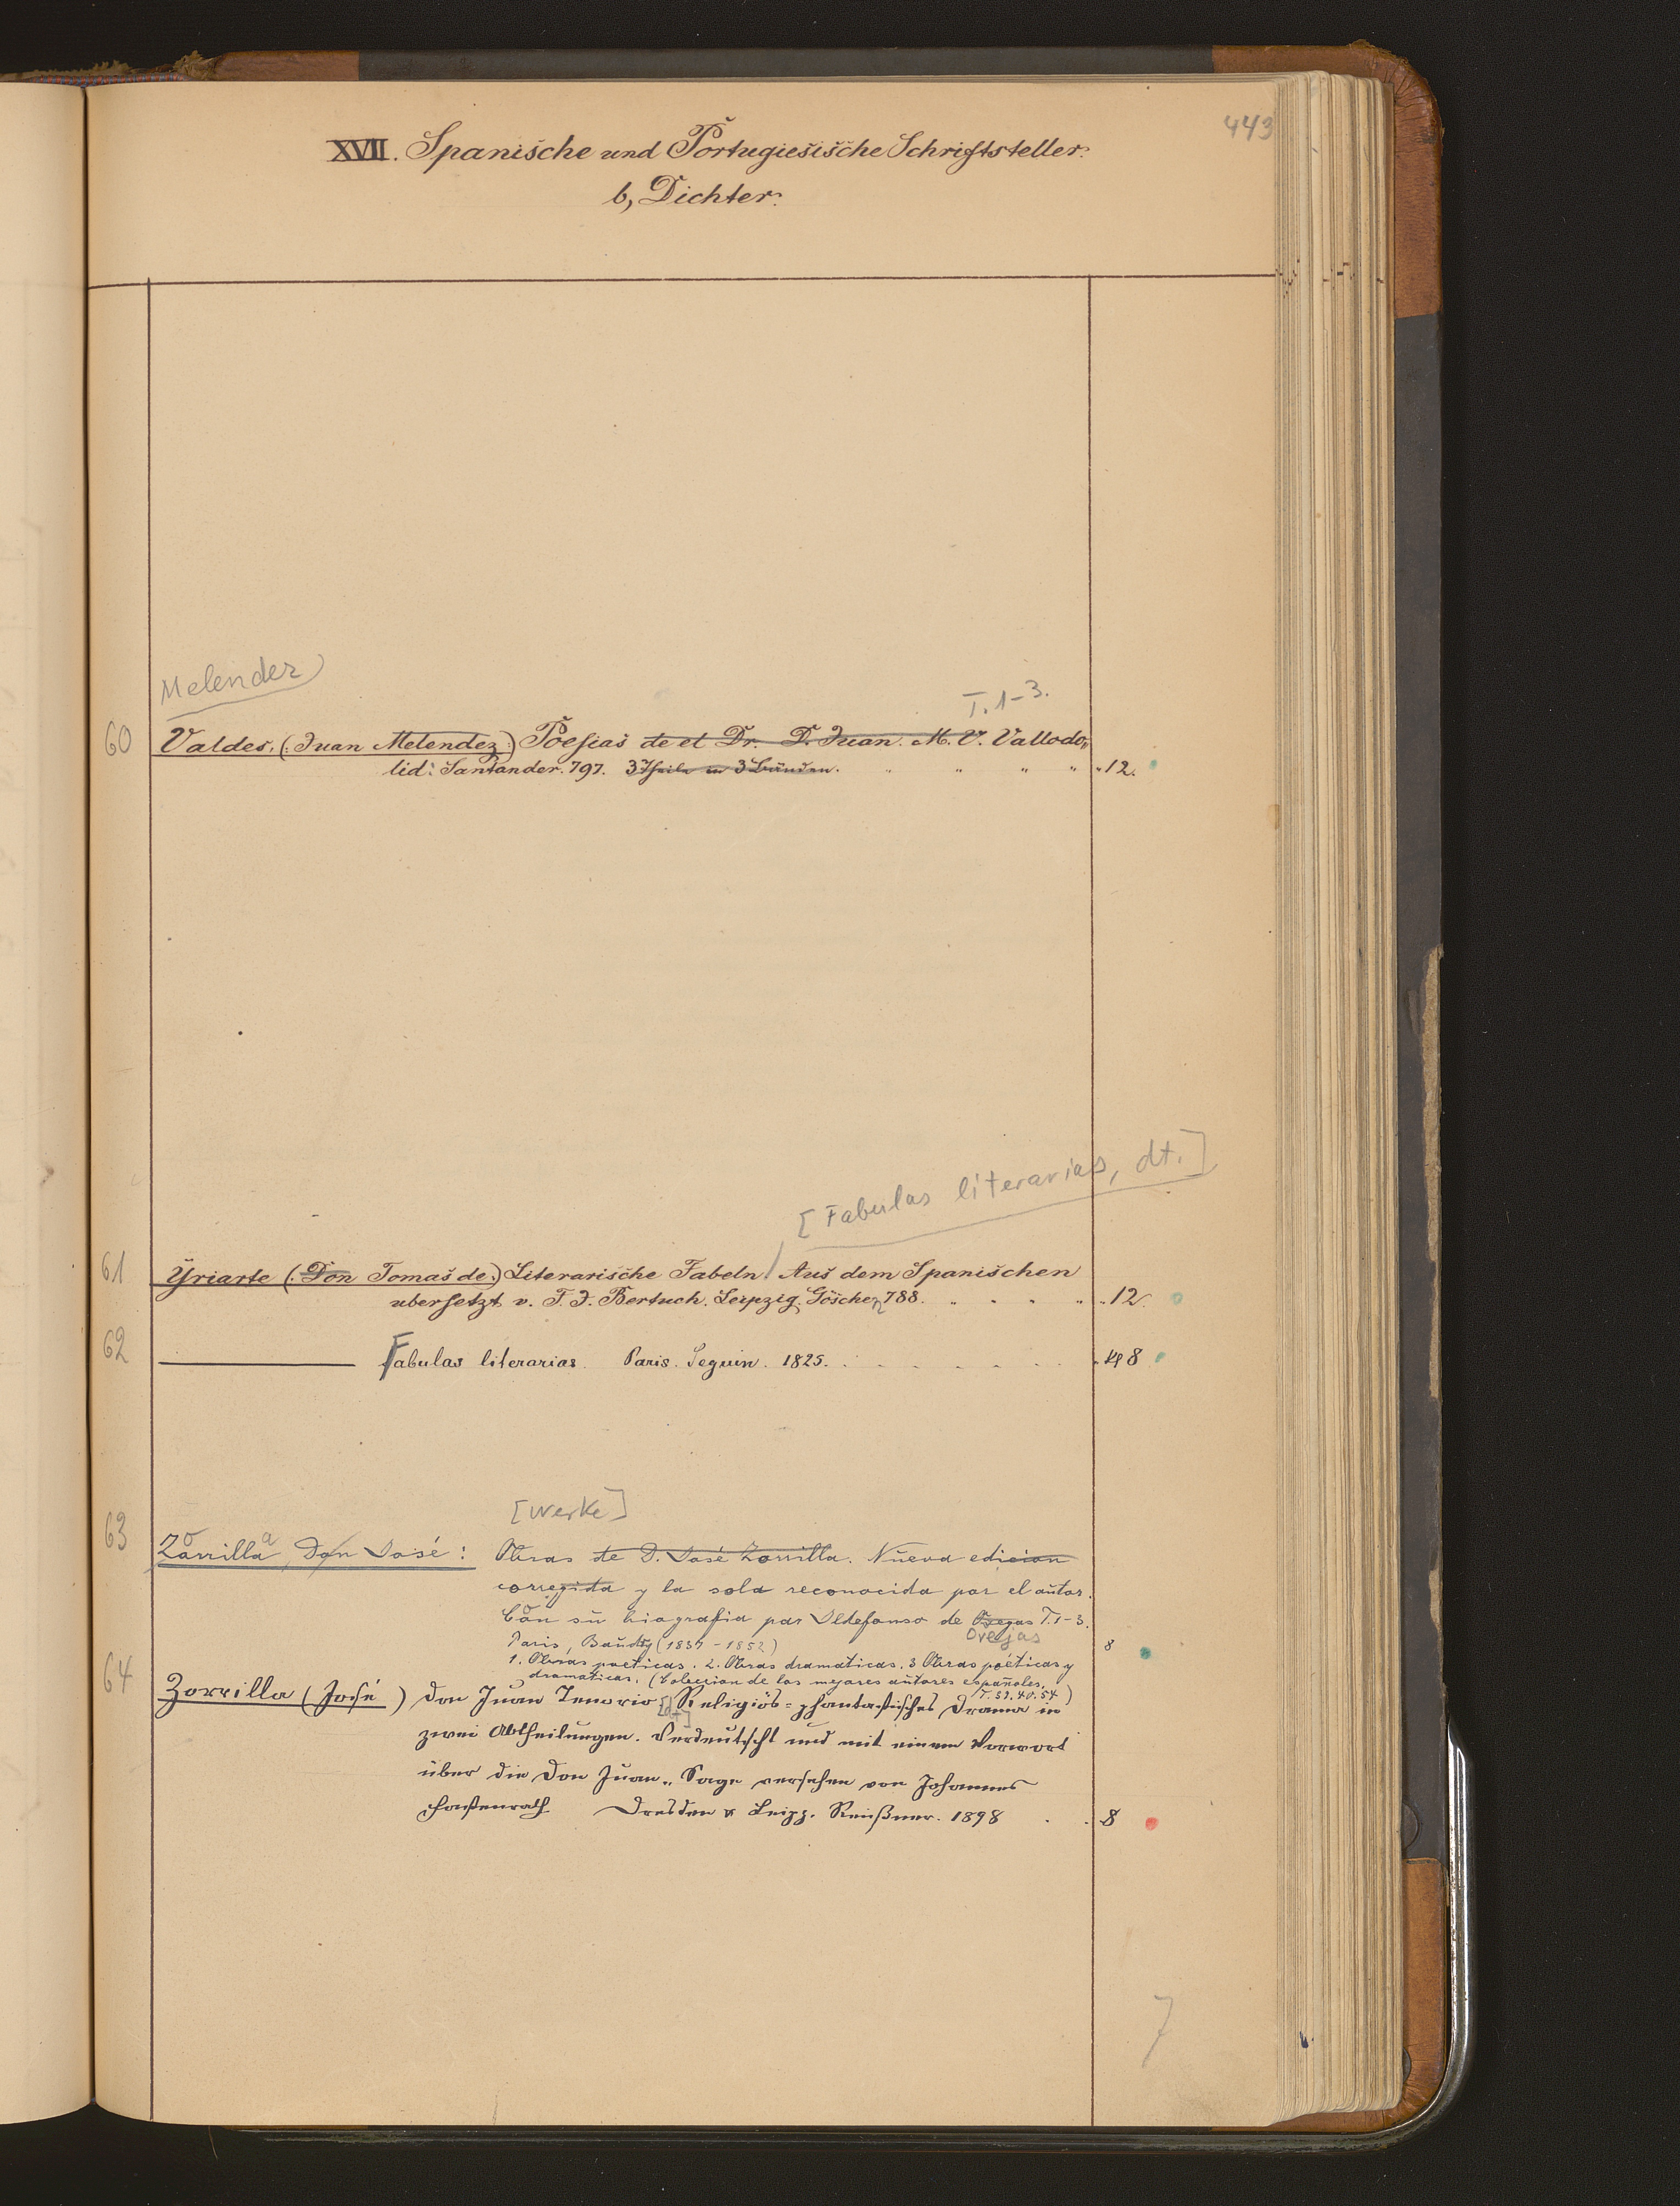 443
XVII. Spanische und Portugiesische Schriftsteller.
b, Dichter.
Melendez
T. 1-3.
60 Valdes. (: Juan Melendez :) Poesias de el Dr. D. Juan. M. V. Vallado„
lid: Santander. 797. 3 Theile in 3 Bänden. " " " " " 12.
[Fabulas literarias, dt.]
61 Yriarte (: Don Tomas de :) Literarische Fabeln / Aus dem Spanischen
ubersetzt v. F. J. Bertuch. Leipzig, Göschen 788. " " " " " 12.
62 ——— Fabulas literarias. Paris. Seguin. 1825. 8
[Werke]
63 Zorrilla, Don José: Obras de D. José Zorrilla. Nueva edicion
corregida y la sola reconocida por el autor.
Con su biografia por Ildefonso de Ovejas T. 1-3.
Ovejas
Paris, Baudry (1837-1852) 8
1. Obras poeticas. 2. Obras dramaticas. 3 Obras poéticas y
dramaticas. (Coleccion de los mejores autores españoles.
T. 39. 40. 54)
64 Zorrilla (José) Don Juan Tenorio [dt] Religiös-phantastisches Drama in
zwei Abtheilungen. Verdeutscht und mit einem Vorwort
über die Don Juan„ Sage versehen von Johannes
Fastenrath Dresden & Leipz. Reißner. 1898 . . 8
7